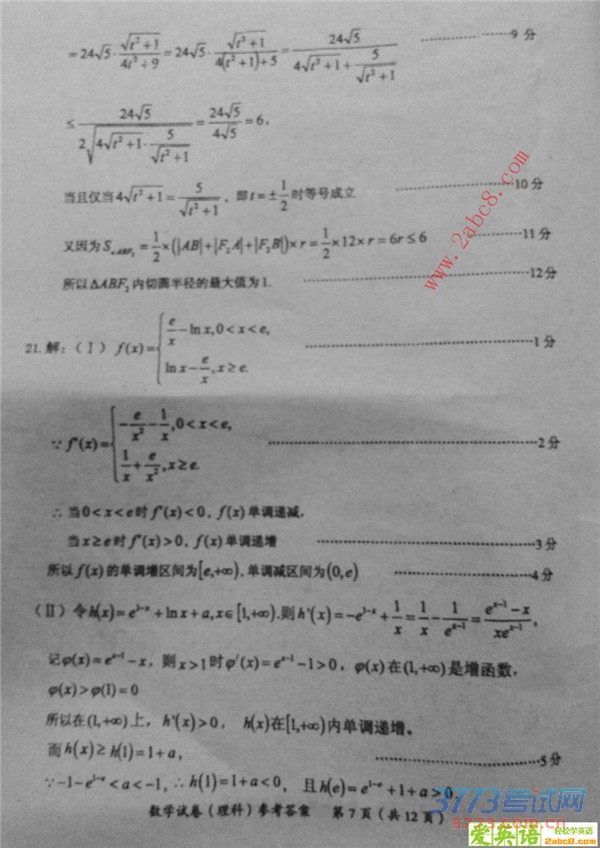 = 24√5 · √(t²+1) / (4t²+9) = 24√5 · √(t²+1) / (4(t²+1)+5) = 24√5 / (4√(t²+1) + 5/√(t²+1)) ……………9 分
≤ 24√5 / (2√(4√(t²+1) · 5/√(t²+1))) = 24√5 / 4√5 = 6,
当且仅当 4√(t²+1) = 5/√(t²+1), 即 t = ±1/2 时等号成立 ……………10 分
又因为 S△ABF₂ = 1/2 × (|AB|+|F₂A|+|F₂B|) × r = 1/2 × 12 × r = 6r ≤ 6 ……………11 分
所以 ΔABF₂ 内切圆半径的最大值为 1. ……………12 分
21. 解:(Ⅰ) f(x) = { e/x − ln x, 0 < x < e, ln x − e/x, x ≥ e. ……………1 分
∵ f'(x) = { −e/x² − 1/x, 0 < x < e, 1/x + e/x², x ≥ e. ……………2 分
∴ 当 0 < x < e 时 f'(x) < 0, f(x) 单调递减,
当 x ≥ e 时 f'(x) > 0, f(x) 单调递增 ……………3 分
所以 f(x) 的单调增区间为 [e,+∞), 单调减区间为 (0,e) ……………4 分
(Ⅱ) 令 h(x) = e^(1−x) + ln x + a, x∈[1,+∞). 则 h'(x) = −e^(1−x) + 1/x = 1/x − 1/e^(x−1) = (e^(x−1) − x) / (xe^(x−1)),
记 φ(x) = e^(x−1) − x, 则 x > 1 时 φ'(x) = e^(x−1) − 1 > 0, φ(x) 在 (1,+∞) 是增函数,
φ(x) > φ(1) = 0
所以在 (1,+∞) 上, h'(x) > 0, h(x) 在 [1,+∞) 内单调递增。
而 h(x) ≥ h(1) = 1+a, ……………5 分
∵ −1−e^(1−e) < a < −1, ∴ h(1) = 1+a < 0, 且 h(e) = e^(1−e) + 1 + a > 0,
数学试卷(理科)参考答案 第 7 页(共 12 页)
www.2abc8.com
3773考试网
3773.com.cn
爱英语 轻松学英语
2abc8.com